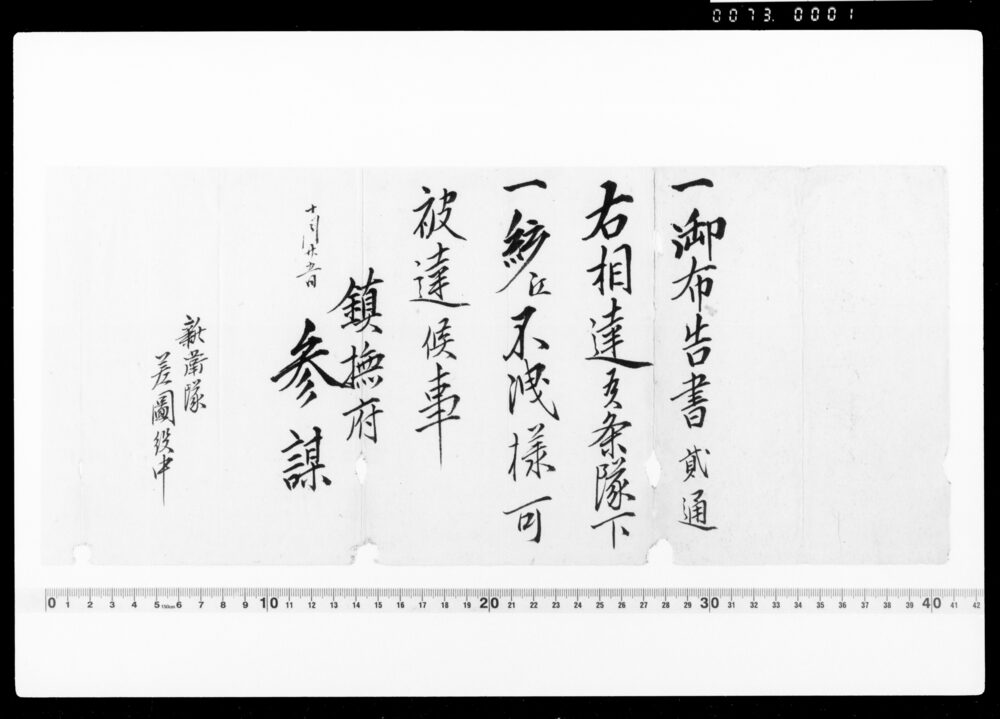 0073. 0001
一御布告書 貳通
右相達候条隊下
一統江不洩様可
被達候事
鎮撫府
参謀
十月廿五日
新衛隊
差圖役中
0 1 2 3 4 5 150cm 6 7 8 9 10 11 12 13 14 15 16 17 18 19 20 21 22 23 24 25 26 27 28 29 30 31 32 33 34 35 36 37 38 39 40 41 42